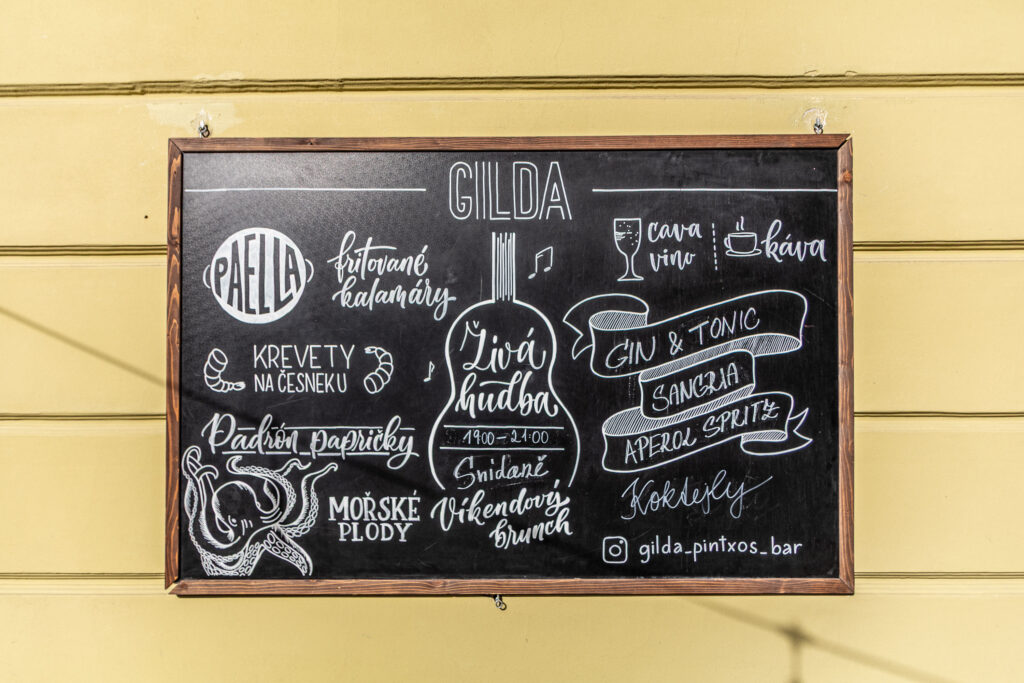 GILDA
PAELLA
fritované
kalamáry
KREVETY
NA ČESNEKU
Padrón papričky
MOŘSKÉ
PLODY
Živá
hudba
1900-21:00
Snídaně
Víkendový
brunch
cava
vino
káva
GIN & TONIC
SANGRIA
APEROL SPRITZ
Koktejly
gilda_pintxos_bar